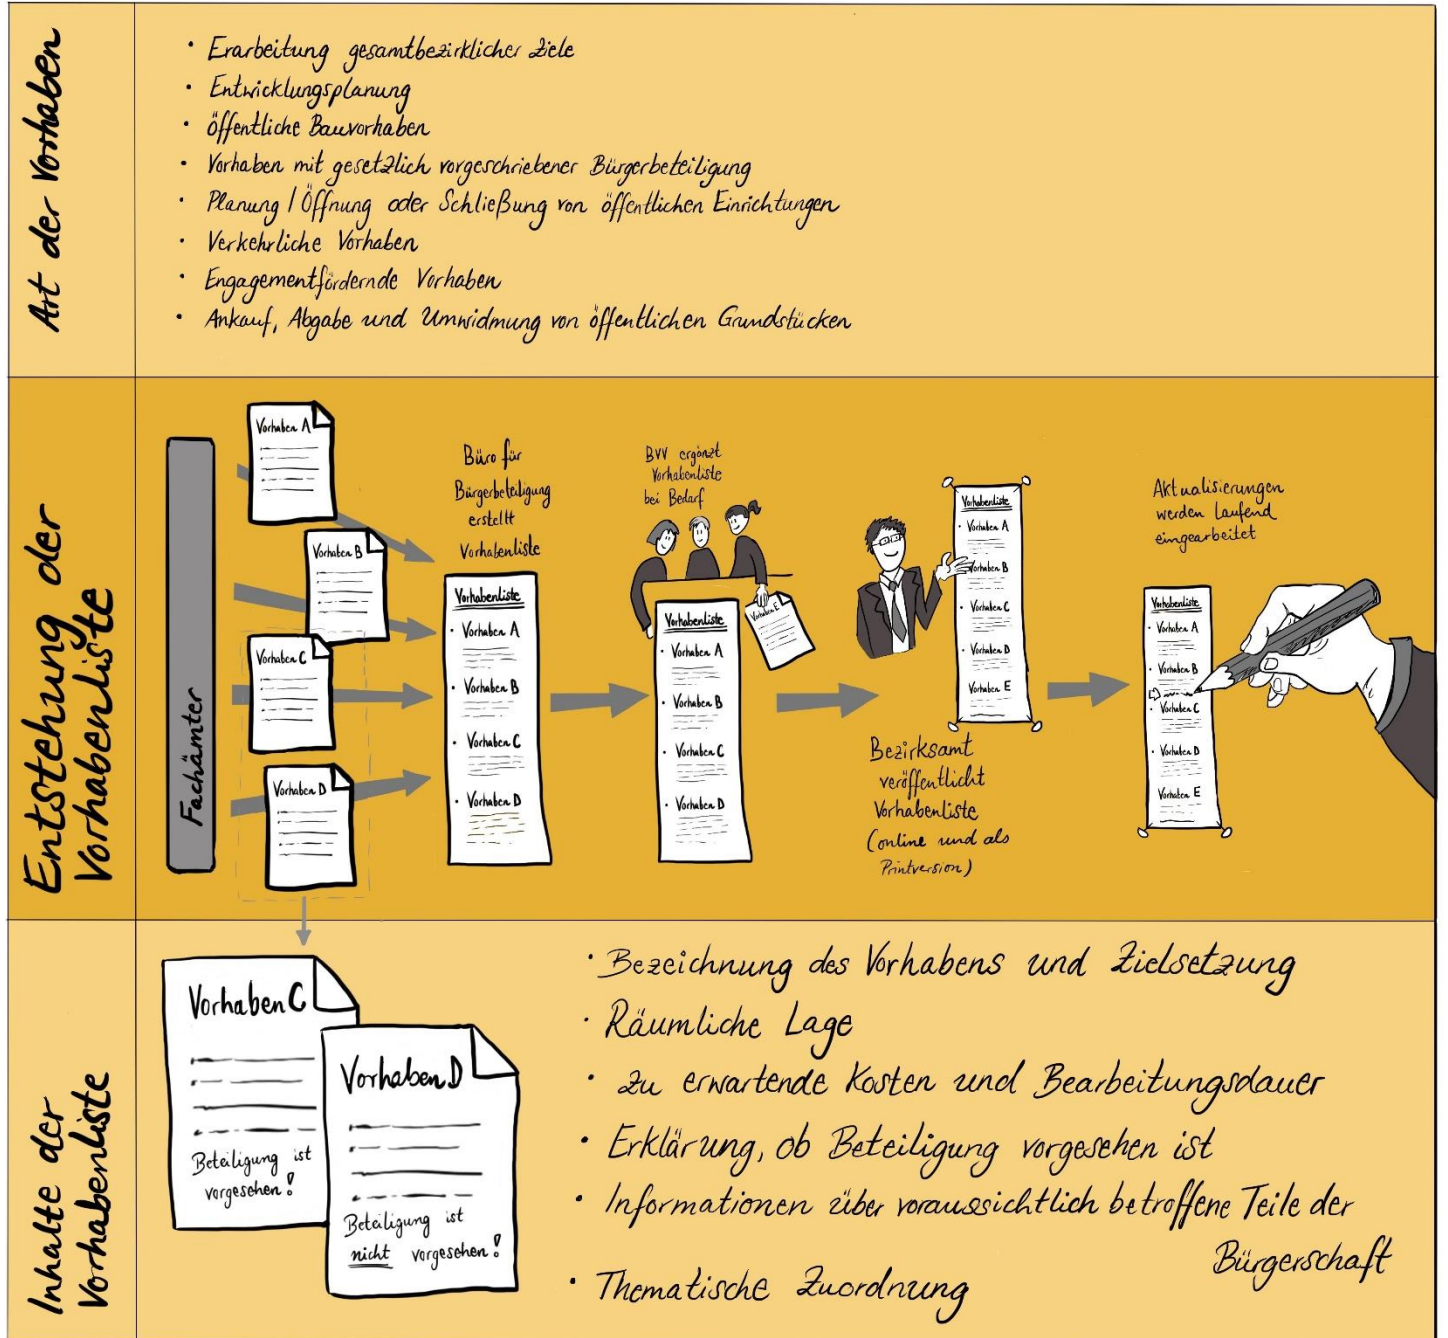 Art der Vorhaben
· Erarbeitung gesamtbezirklicher Ziele
· Entwicklungsplanung
· öffentliche Bauvorhaben
· Vorhaben mit gesetzlich vorgeschriebener Bürgerbeteiligung
· Planung / Öffnung oder Schließung von öffentlichen Einrichtungen
· Verkehrliche Vorhaben
· Engagementfördernde Vorhaben
· Ankauf, Abgabe und Umwidmung von öffentlichen Grundstücken
Entstehung der
Vorhabenliste
Fachämter
Vorhaben A
Vorhaben B
Vorhaben C
Vorhaben D
Büro für
Bürgerbeteiligung
erstellt
Vorhabenliste
Vorhabenliste
· Vorhaben A
· Vorhaben B
· Vorhaben C
· Vorhaben D
BVV ergänzt
Vorhabenliste
bei Bedarf
Vorhaben E
Vorhabenliste
· Vorhaben A
· Vorhaben B
· Vorhaben C
· Vorhaben D
Vorhabenliste
· Vorhaben A
Vorhaben B
· Vorhaben C
· Vorhaben D
Vorhaben E
Bezirksamt
veröffentlicht
Vorhabenliste
(online und als
Printversion)
Aktualisierungen
werden laufend
eingearbeitet
Vorhabenliste
· Vorhaben A
· Vorhaben B
· Vorhaben C
· Vorhaben D
Vorhaben E
Inhalte der
Vorhabenliste
Vorhaben C
Beteiligung ist
vorgesehen!
Vorhaben D
Beteiligung ist
nicht vorgesehen!
· Bezeichnung des Vorhabens und Zielsetzung
· Räumliche Lage
· zu erwartende Kosten und Bearbeitungsdauer
· Erklärung, ob Beteiligung vorgesehen ist
· Informationen über voraussichtlich betroffene Teile der
Bürgerschaft
· Thematische Zuordnung